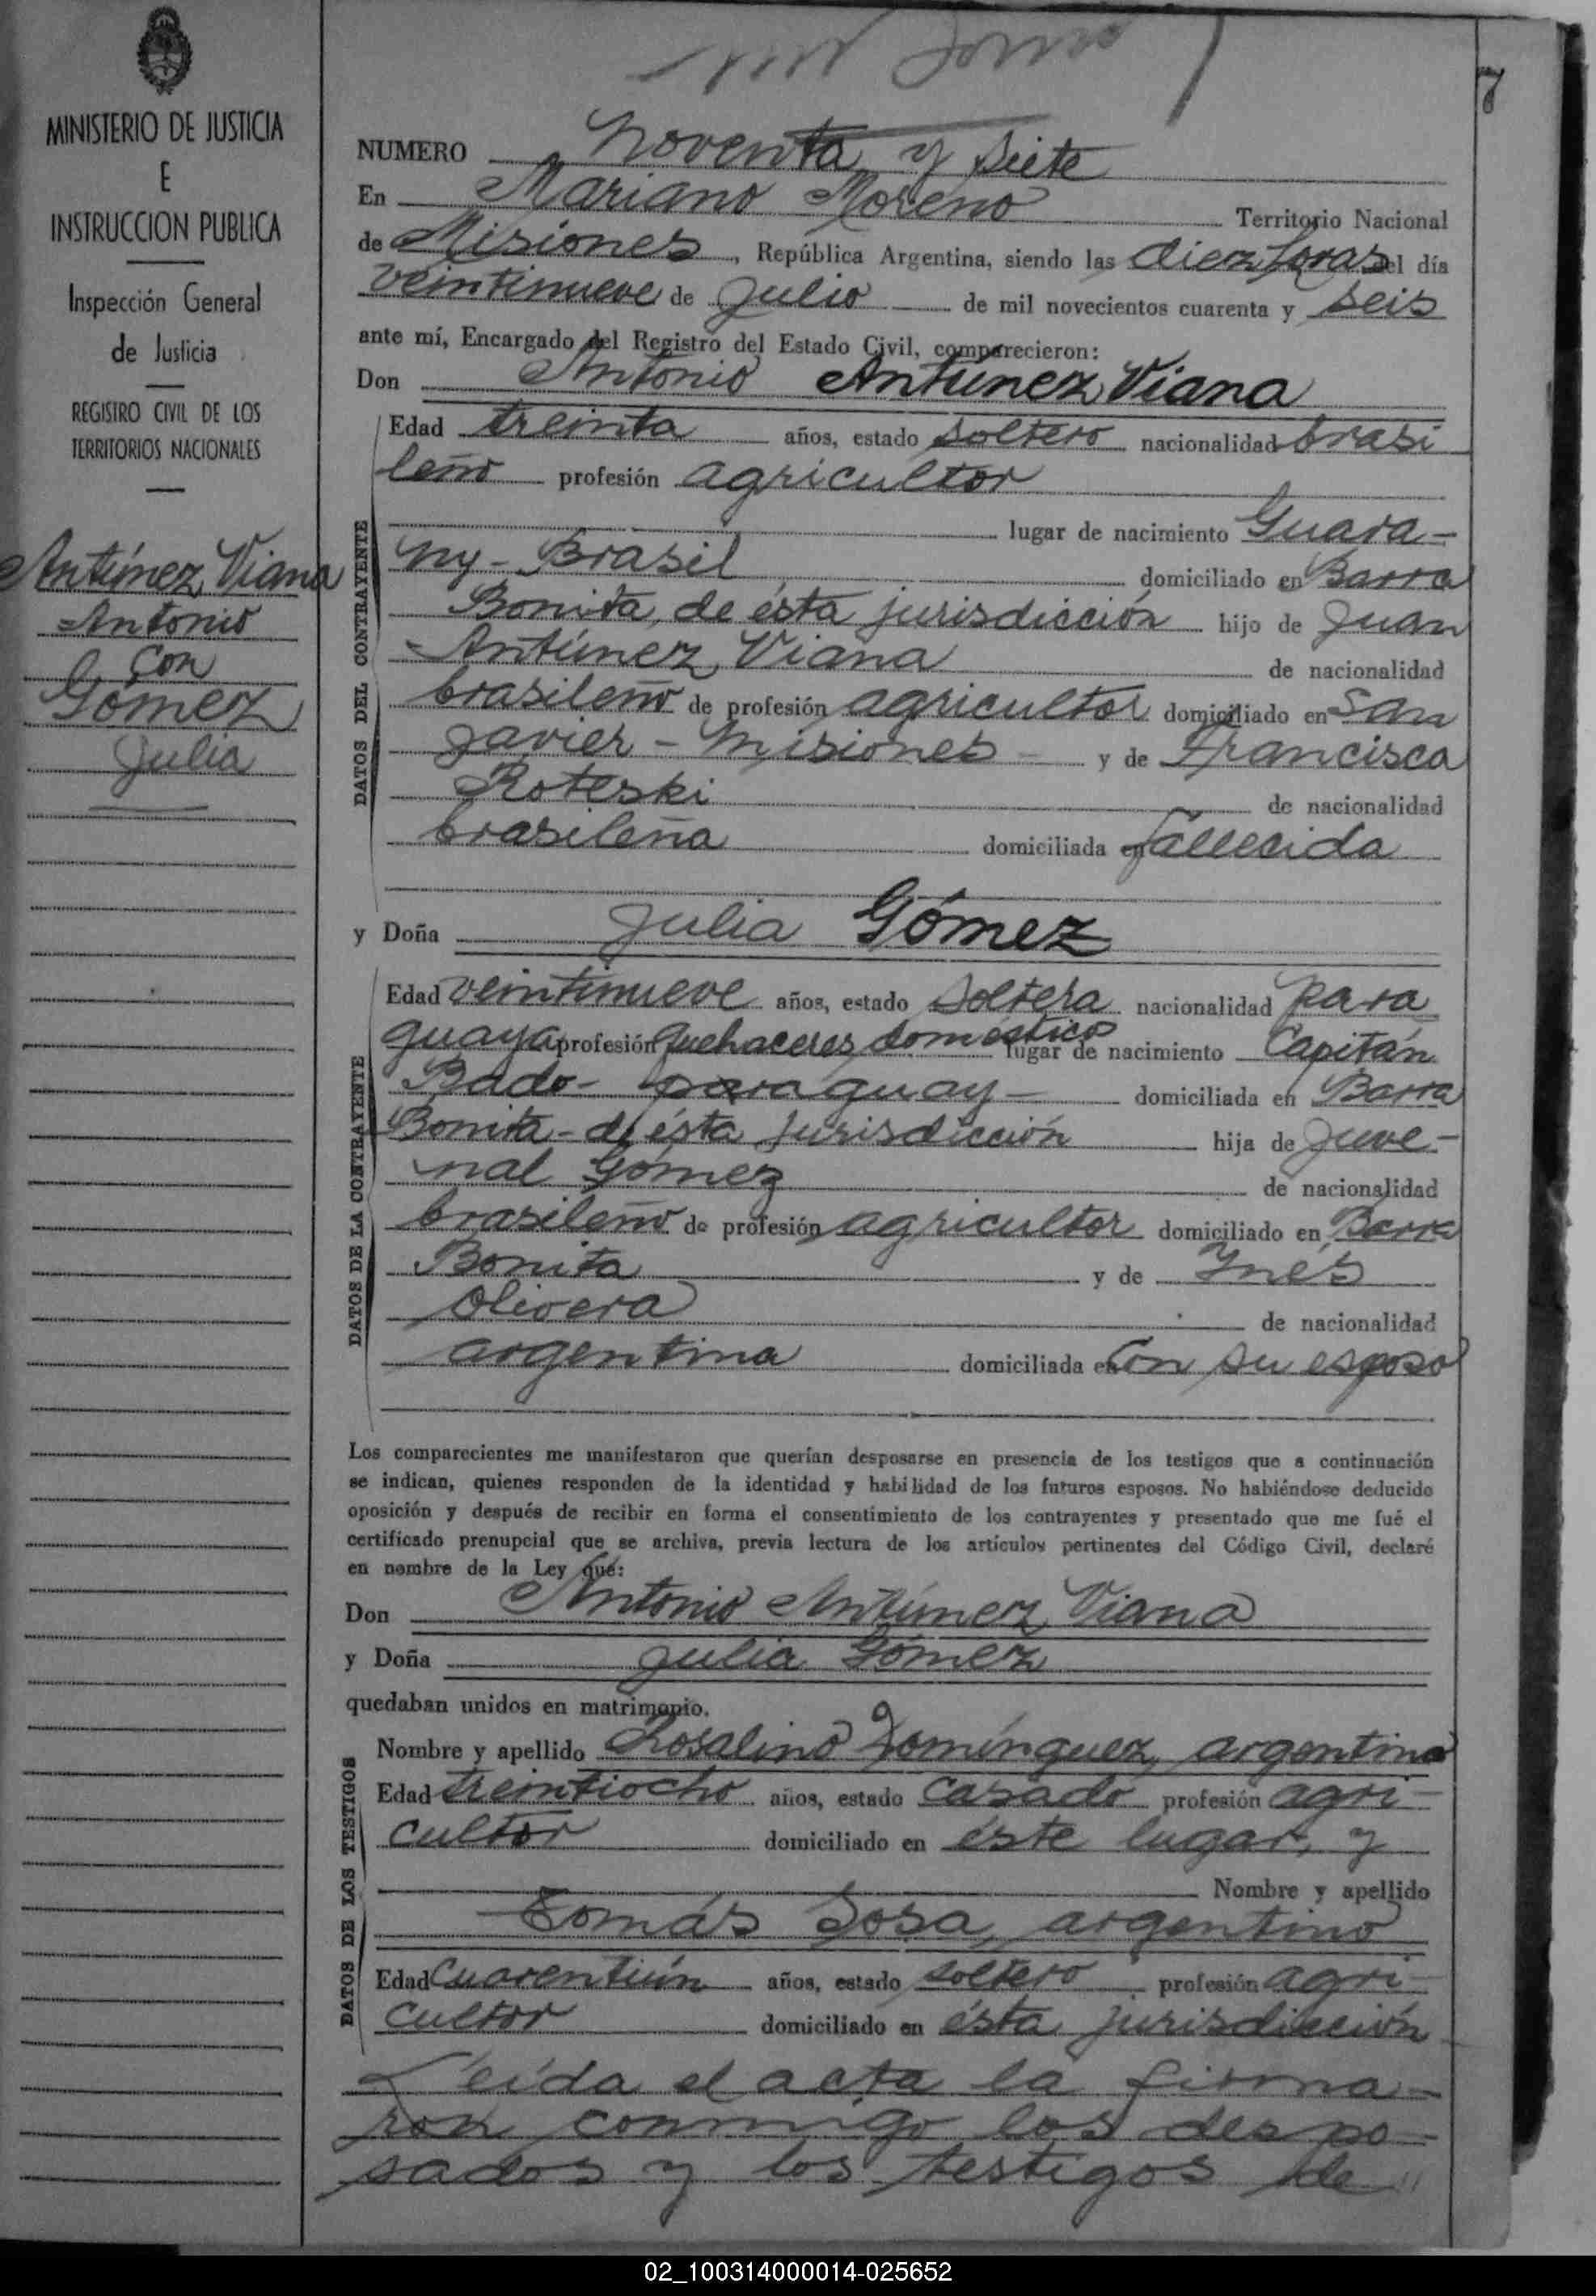 7
MINISTERIO DE JUSTICIA
E
INSTRUCCION PUBLICA
Inspección General
de Justicia
REGISTRO CIVIL DE LOS
TERRITORIOS NACIONALES
Antúnez, Viana
Antonio
con
Gómez
Julia
NUMERO noventa y siete
En Mariano Moreno Territorio Nacional
de Misiones, República Argentina, siendo las diez horas del día
veintinueve de Julio de mil novecientos cuarenta y seis
ante mí, Encargado del Registro del Estado Civil, comparecieron:
Don Antonio Antúnez, Viana
DATOS DEL CONTRAYENTE
Edad treinta años, estado soltero nacionalidad brasi
leño profesión agricultor
lugar de nacimiento Guara-
ny - Brasil domiciliado en Barra
Bonita, de ésta jurisdicción hijo de Juan
Antúnez, Viana de nacionalidad
brasileño de profesión agricultor domiciliado en San
Javier - Misiones - y de Francisca
Roteski de nacionalidad
brasileña domiciliada en fallecida
y Doña Julia Gómez
DATOS DE LA CONTRAYENTE
Edad veintinueve años, estado soltera nacionalidad para
guaya profesión quehaceres domésticos lugar de nacimiento Capitán
Bado - paraguay - domiciliada en Barra
Bonita - de ésta jurisdicción hija de Juve-
nal Gómez de nacionalidad
brasileño de profesión agricultor domiciliado en Barra
Bonita y de Ynés
Olivera de nacionalidad
argentina domiciliada en con su esposo
Los comparecientes me manifestaron que querían desposarse en presencia de los testigos que a continuación
se indican, quienes responden de la identidad y habilidad de los futuros esposos. No habiéndose deducido
oposición y después de recibir en forma el consentimiento de los contrayentes y presentado que me fué el
certificado prenupcial que se archiva, previa lectura de los artículos pertinentes del Código Civil, declaré
en nombre de la Ley que:
Don Antonio Antúnez, Viana
y Doña Julia Gómez
quedaban unidos en matrimonio.
DATOS DE LOS TESTIGOS
Nombre y apellido Rosalino Domínguez, argentino
Edad treintiocho años, estado casado profesión agri-
cultor domiciliado en éste lugar, y
Nombre y apellido
Tomás Sosa, argentino
Edad cuarentiún años, estado soltero profesión agri-
cultor domiciliado en ésta jurisdicción
Leída el acta la firma-
ron conmigo los despo-
sados y los testigos de
02_100314000014-025652